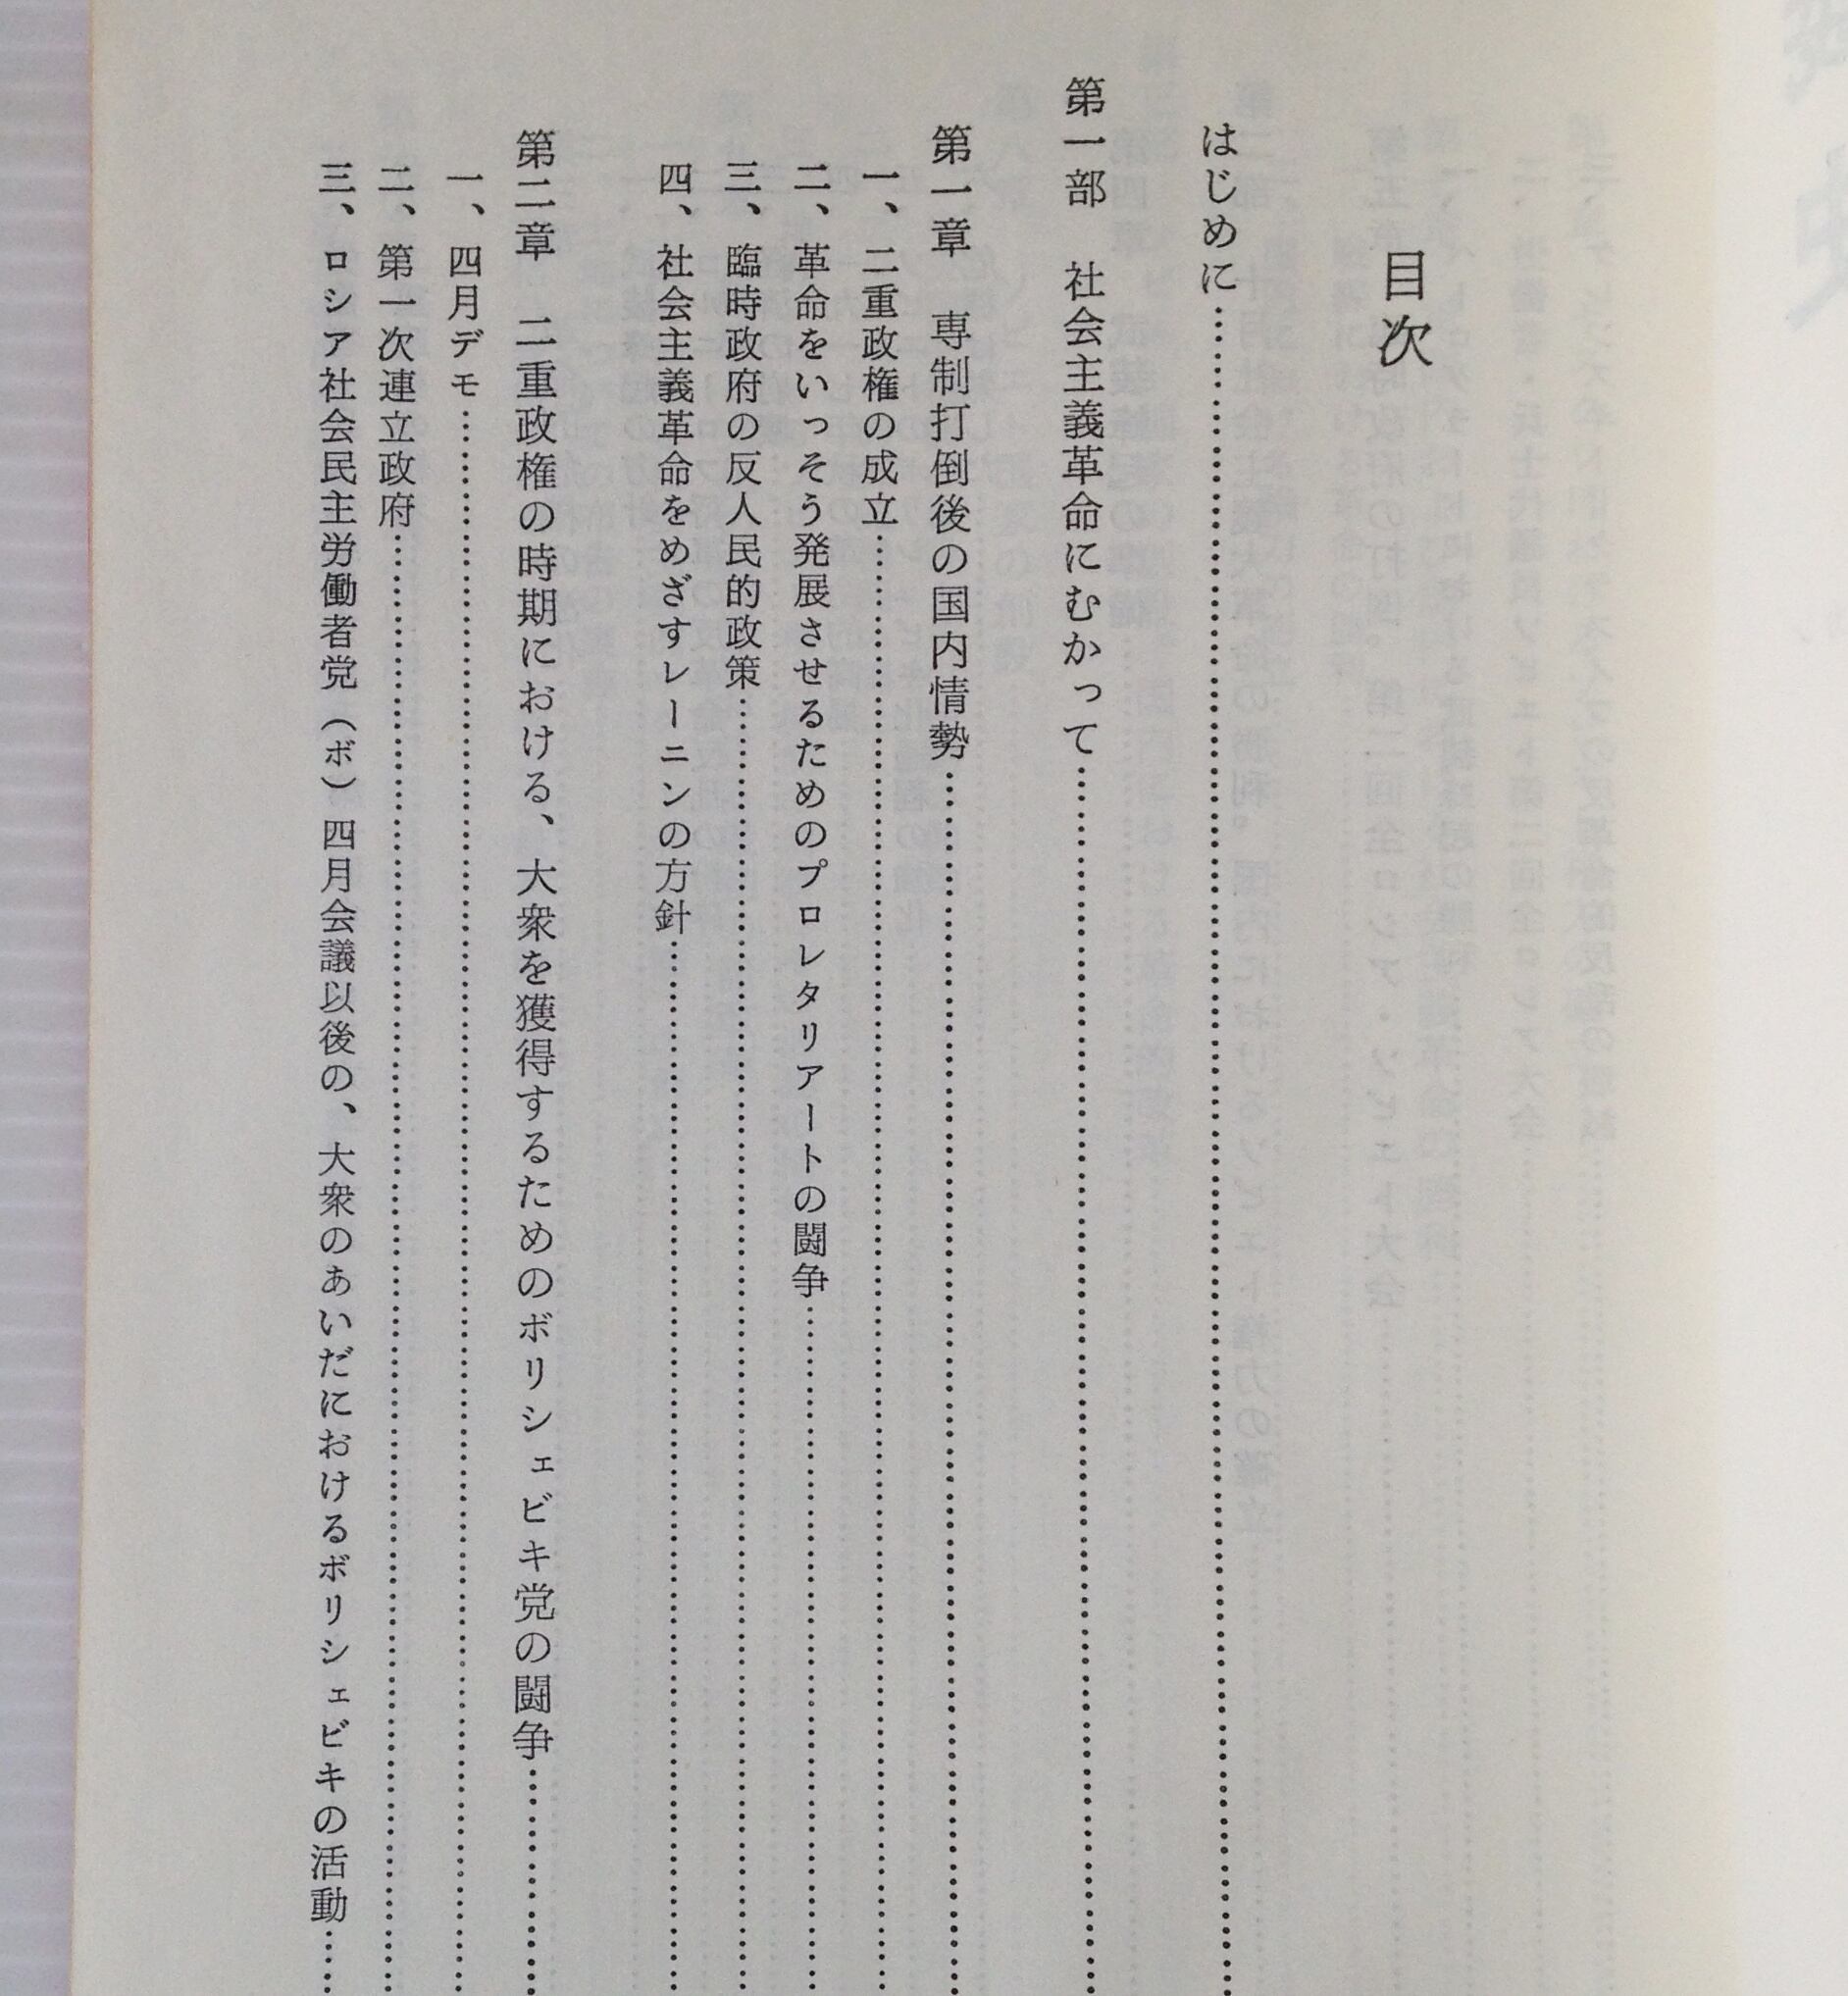 目次
はじめに
第一部 社会主義革命にむかって
第一章 専制打倒後の国内情勢
一、二重政権の成立
二、革命をいっそう発展させるためのプロレタリアートの闘争
三、臨時政府の反人民的政策
四、社会主義革命をめざすレーニンの方針
第二章 二重政権の時期における、大衆を獲得するためのボリシェビキ党の闘争
一、四月デモ
二、第一次連立政府
三、ロシア社会民主労働者党（ボ）四月会議以後の、大衆のあいだにおけるボリシェビキの活動